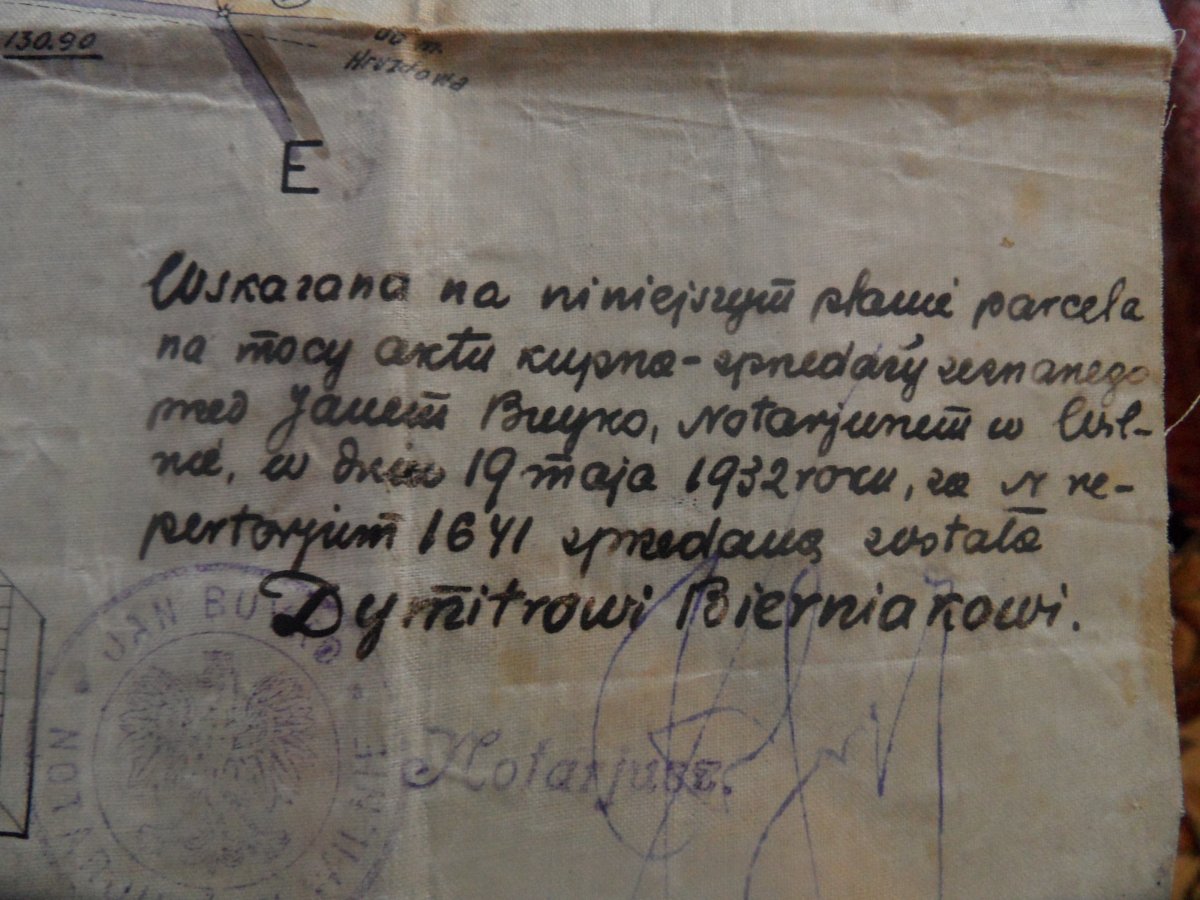 130.90
do m.
Hruzdowa
E
Wskazana na niniejszym planie parcela
na mocy aktu kupna-sprzedaży zeznanego
przed Janem Buyko, Notarjuszem w Wil-
nie, w dniu 19 maja 1932 roku, za N re-
pertorjum 1641 sprzedaną została
Dymitrowi Bierniakowi.
JAN BUYKO
Notarjusz.